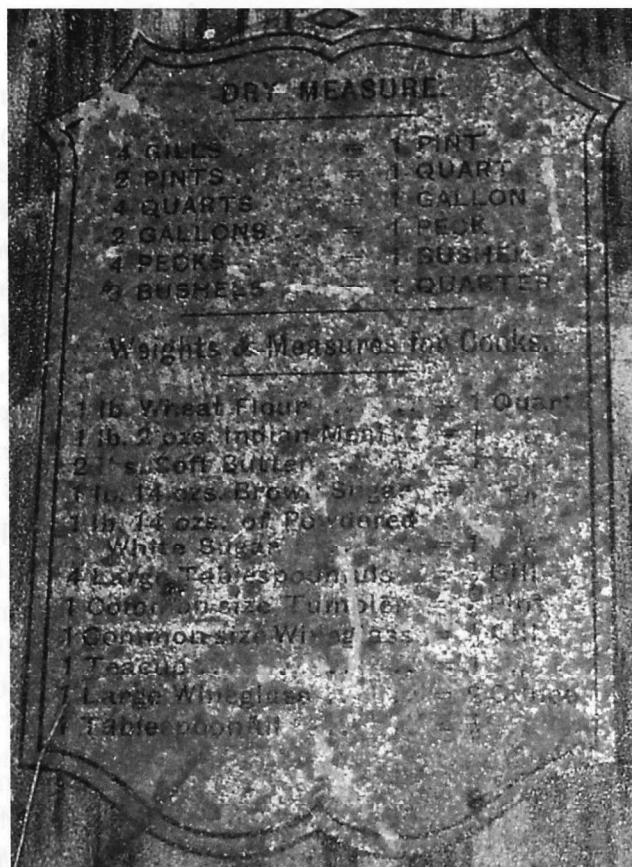 DRY MEASURE.
4 GILLS .. .. = 1 PINT
2 PINTS .. .. = 1 QUART
4 QUARTS .. = 1 GALLON
2 GALLONS .. = 1 PECK
4 PECKS .. = 1 BUSHEL
BUSHELS = 1 QUARTER
Weights & Measures for Cooks.
1 lb. Wheat Flour .. .. = 1 Quart
1 lb. 2 ozs. Indian Meal .. = 1 ..
2 lbs. Soft Butter .. = 1
1 lb. 14 ozs. Brown Sugar =
1 lb. 14 ozs. of Powdered
White Sugar .. .. = 1
4 Large Tablespoonfuls = Gill
1 Common-size Tumbler = Pint
1 Common-size Wineglass =
1 Teacup .. .. = 1
1 Large Wineglass .. =
1 Tablespoonful .. =